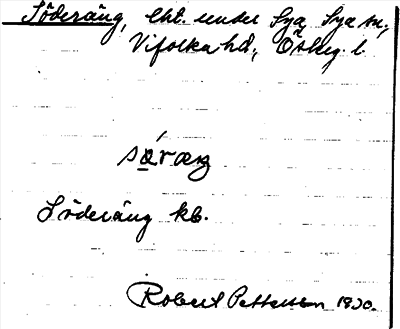 Söderäng, lht. under Sya, Sya sn,
Vifolka hd, Östg. l.
Söderäng kb.
Robert Pettersson 1930.